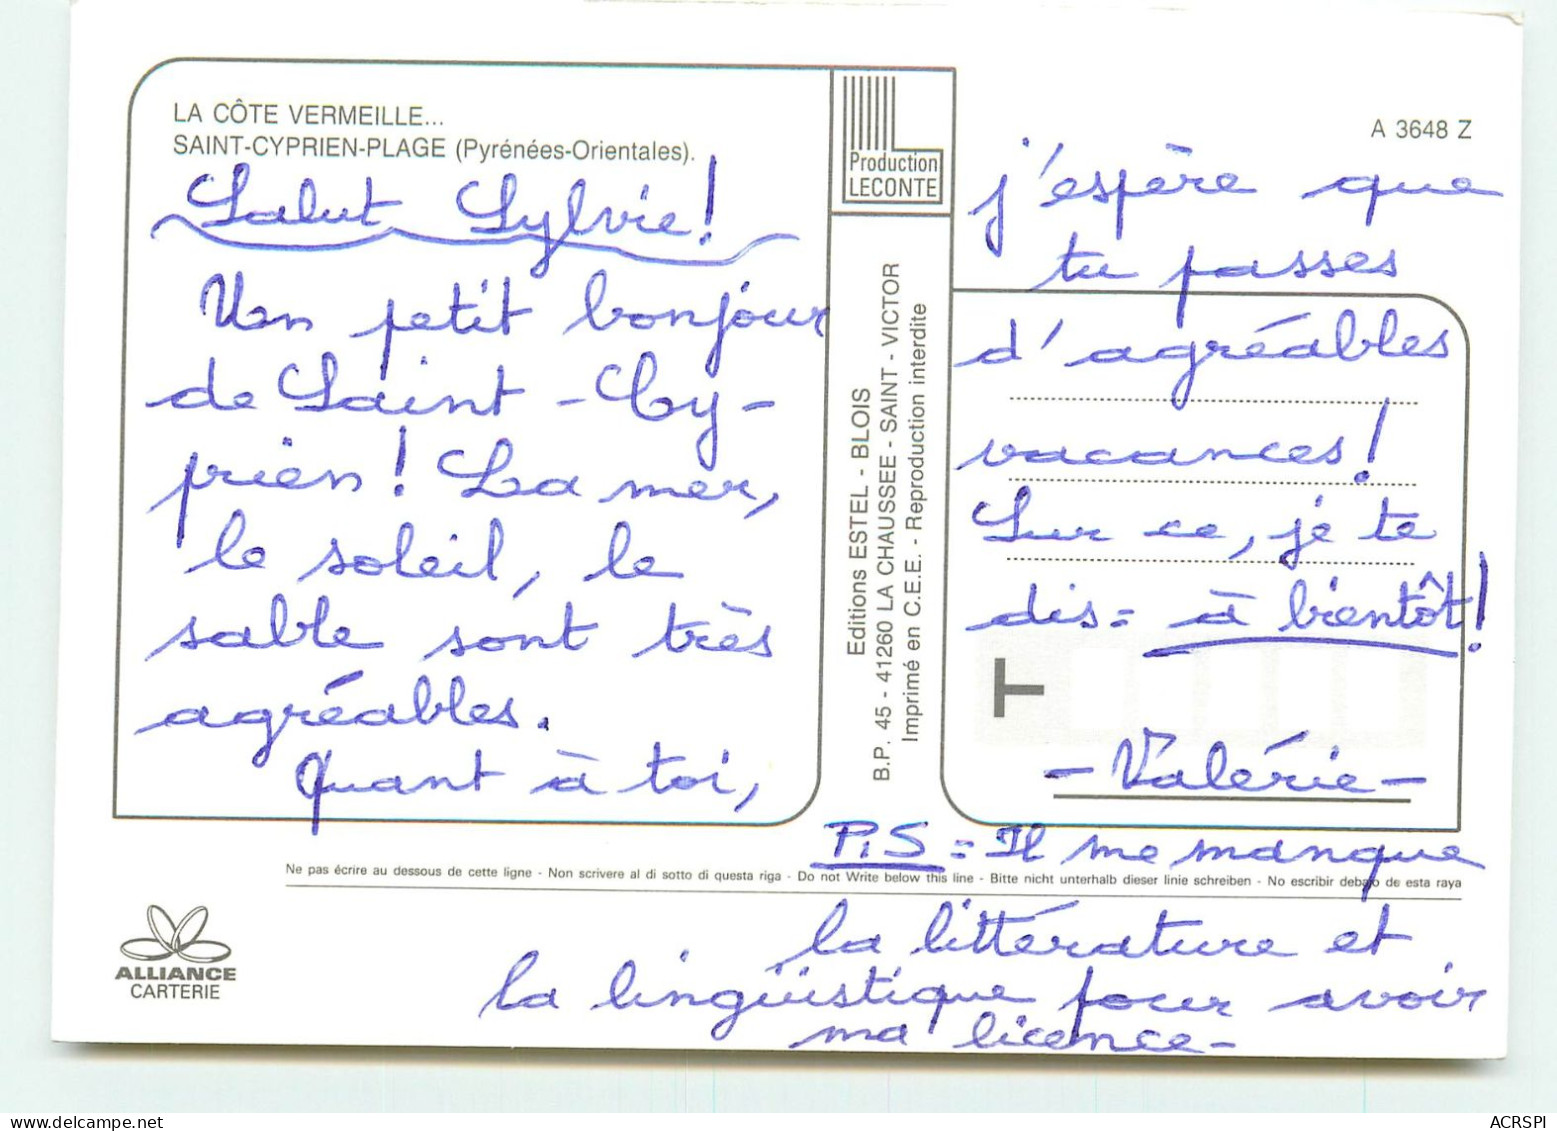 LA CÔTE VERMEILLE...
SAINT-CYPRIEN-PLAGE (Pyrénées-Orientales).
Salut Sylvie!
Un petit bonjour
de Saint-Cy-
prien! La mer,
le soleil, le
sable sont très
agréables.
Quant à toi,
Production
LECONTE
Editions ESTEL - BLOIS
B.P. 45 - 41260 LA CHAUSSEE - SAINT - VICTOR
Imprimé en C.E.E. - Reproduction interdite
A 3648 Z
j'espère que
tu passes
d'agréables
vacances!
Sur ce, je te
dis= à bientôt!
T
- Valérie -
P.S = Il me manque
Ne pas écrire au dessous de cette ligne - Non scrivere al di sotto di questa riga - Do not Write below this line - Bitte nicht unterhalb dieser linie schreiben - No escribir debajo de esta raya
la littérature et
la lingüistique pour avoir
ma licence-
ALLIANCE
CARTERIE
delcampe.net
ACRSPI